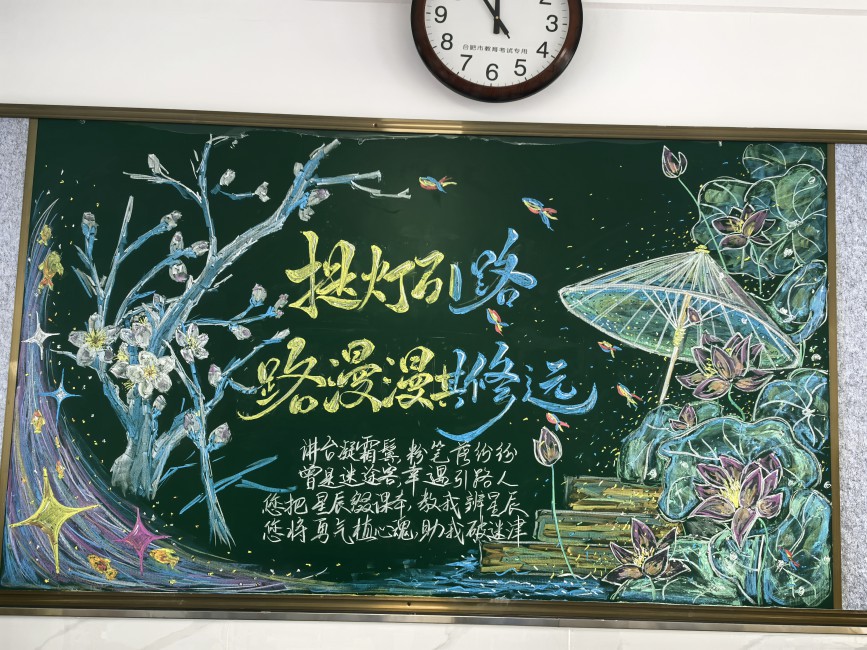 9 2 3
8 4
7 6 5
合肥市教育考试专用
提灯引路
路漫漫其修远
讲台凝霜鬓,粉笔落纷纷
曾是迷途客,幸遇引路人
您把星辰缀课本,教我辨星辰
您将勇气植心魂,助我破迷津